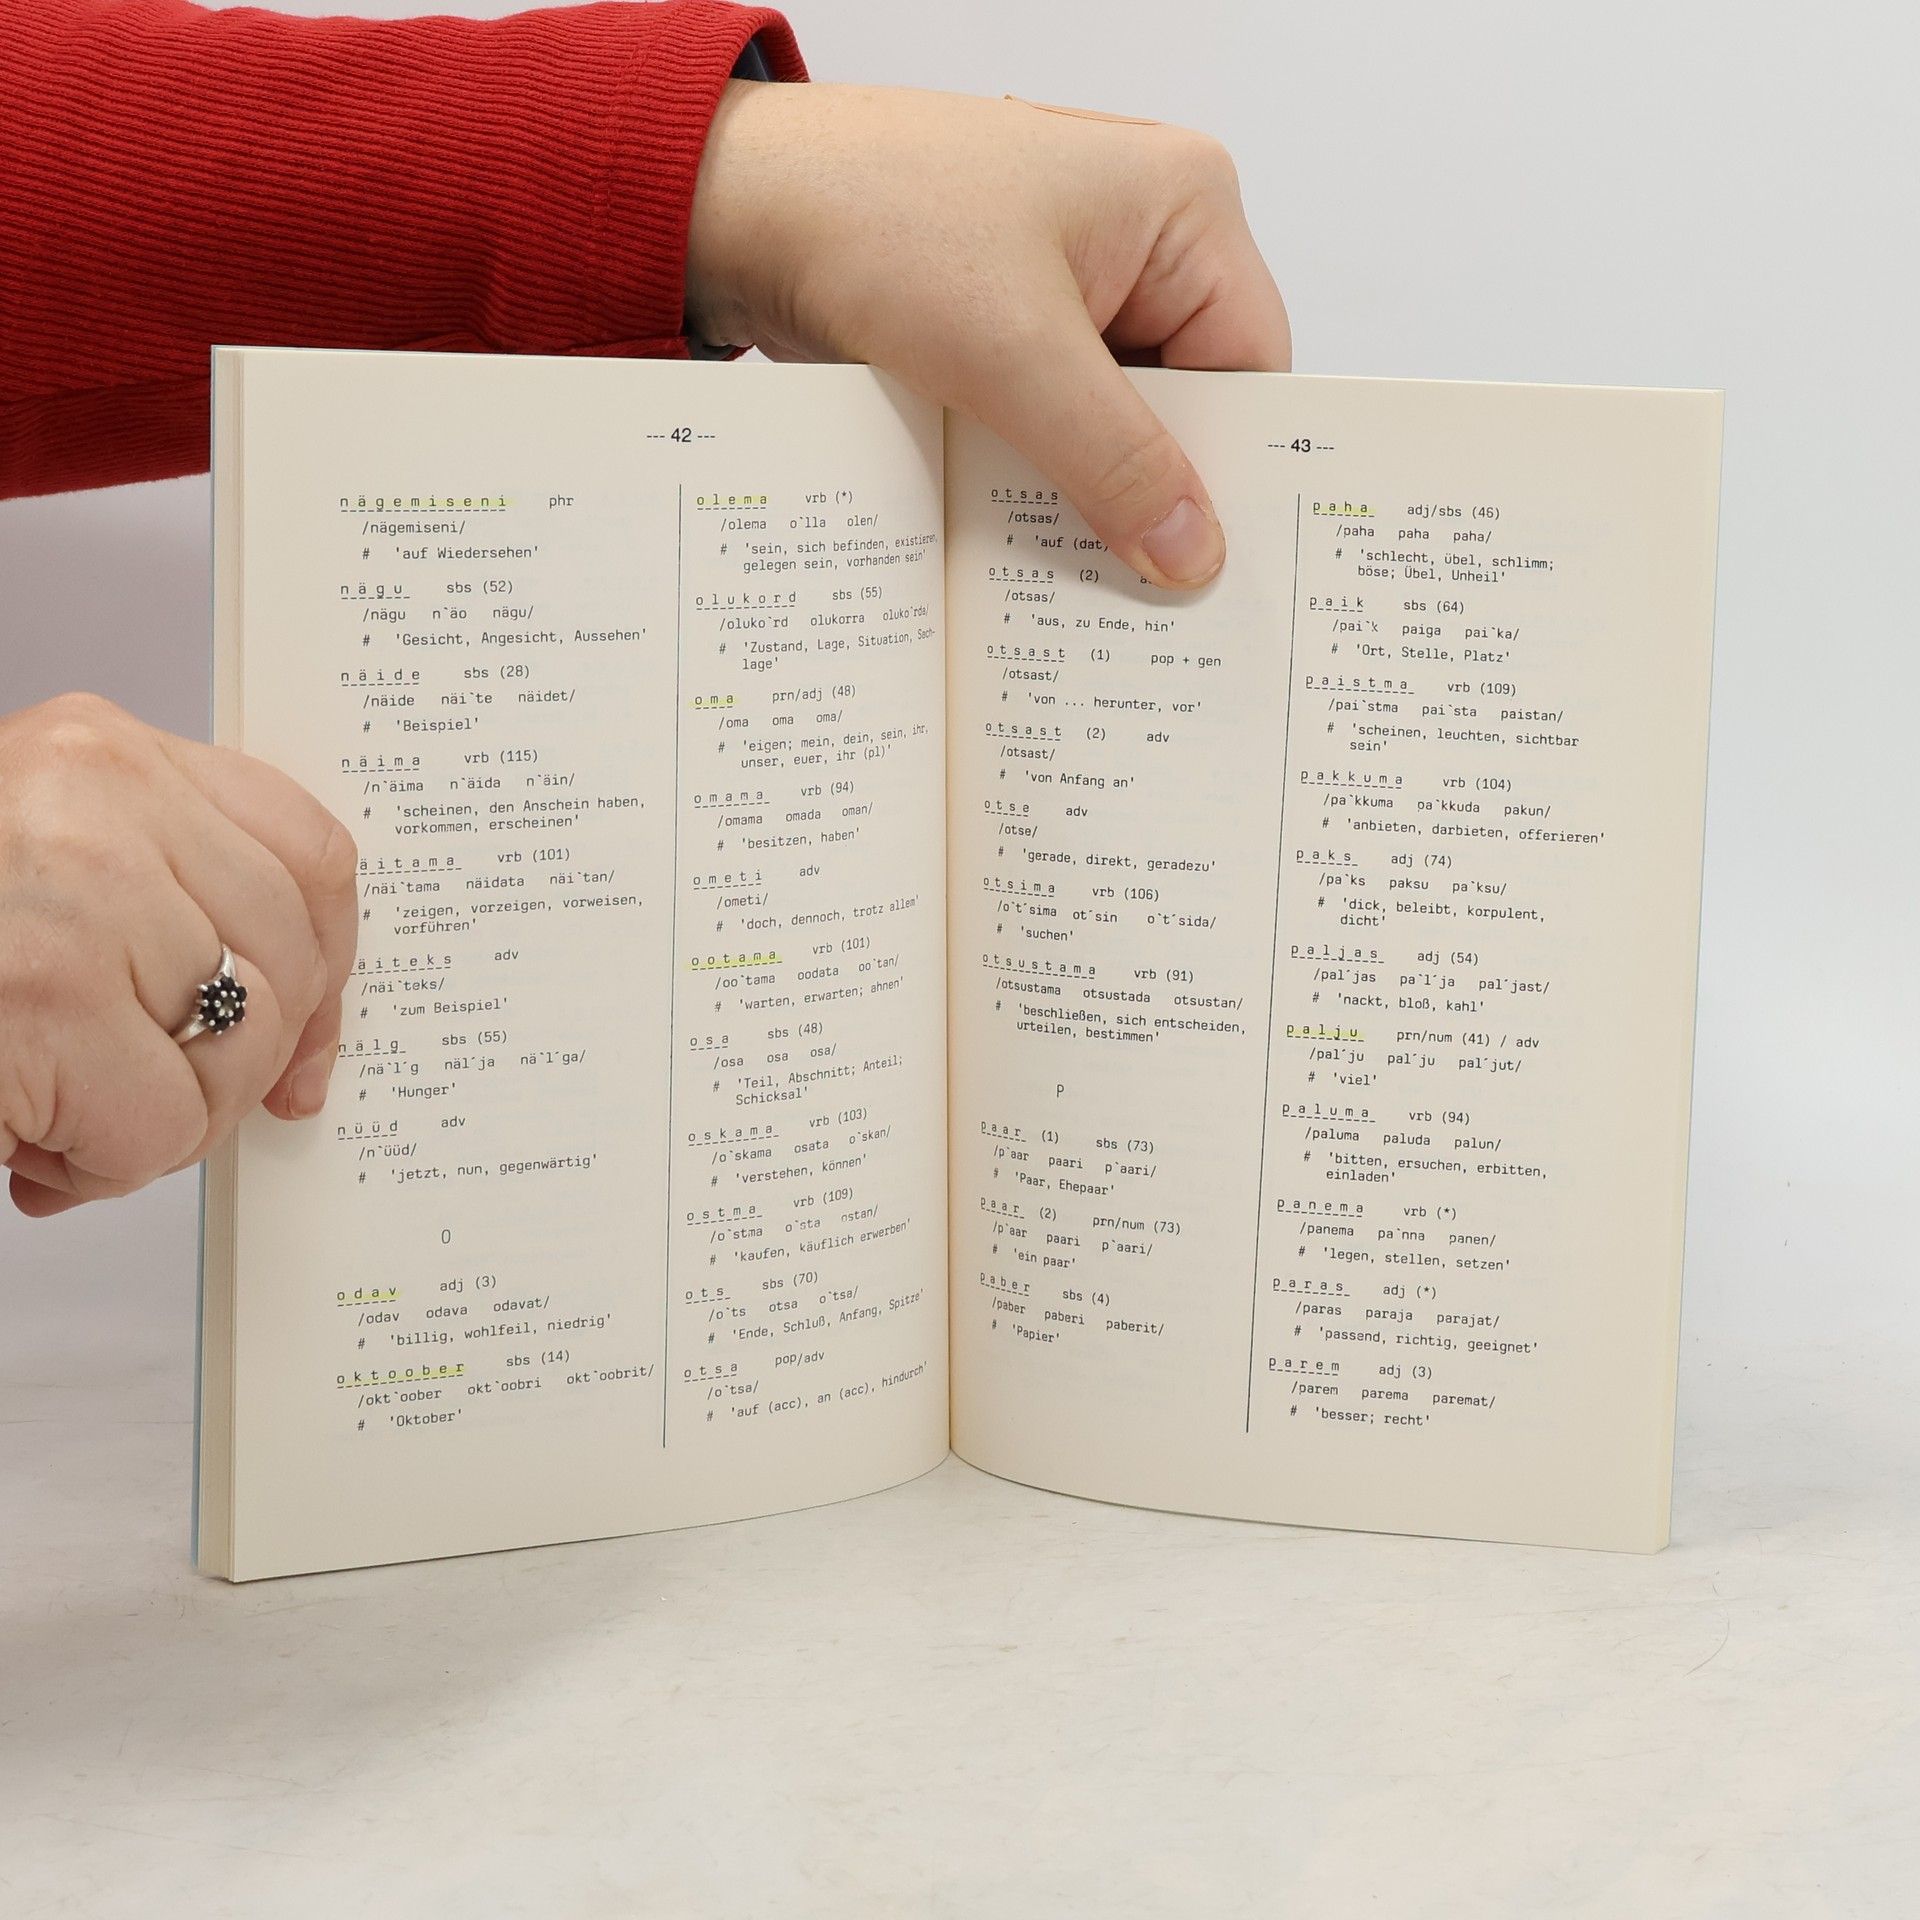 --- 42 ---
nägemiseni phr
/nägemiseni/
# 'auf Wiedersehen'
nägu sbs (52)
/nägu n`äo nägu/
# 'Gesicht, Angesicht, Aussehen'
näide sbs (28)
/näide näi`te näidet/
# 'Beispiel'
näima vrb (115)
/n`äima n`äida n`äin/
# 'scheinen, den Anschein haben,
vorkommen, erscheinen'
äitama vrb (101)
/näi`tama näidata näi`tan/
# 'zeigen, vorzeigen, vorweisen,
vorführen'
äiteks adv
/näi`teks/
# 'zum Beispiel'
nälg sbs (55)
/nä`l´g näl´ja nä`l´ga/
# 'Hunger'
nüüd adv
/n`üüd/
# 'jetzt, nun, gegenwärtig'
O
odav adj (3)
/odav odava odavat/
# 'billig, wohlfeil, niedrig'
oktoober sbs (14)
/okt`oober okt`oobri okt`oobrit/
# 'Oktober'
olema vrb (*)
/olema o`lla olen/
# 'sein, sich befinden, existieren,
gelegen sein, vorhanden sein'
olukord sbs (55)
/oluko`rd olukorra oluko`rda/
# 'Zustand, Lage, Situation, Sach-
lage'
oma prn/adj (48)
/oma oma oma/
# 'eigen; mein, dein, sein, ihr,
unser, euer, ihr (pl)'
omama vrb (94)
/omama omada oman/
# 'besitzen, haben'
ometi adv
/ometi/
# 'doch, dennoch, trotz allem'
ootama vrb (101)
/oo`tama oodata oo`tan/
# 'warten, erwarten; ahnen'
osa sbs (48)
/osa osa osa/
# 'Teil, Abschnitt; Anteil;
Schicksal'
oskama vrb (103)
/o`skama osata o`skan/
# 'verstehen, können'
ostma vrb (109)
/o`stma o`sta ostan/
# 'kaufen, käuflich erwerben'
ots sbs (70)
/o`ts otsa o`tsa/
# 'Ende, Schluß, Anfang, Spitze'
otsa pop/adv
/o`tsa/
# 'auf (acc), an (acc), hindurch'
--- 43 ---
otsas
/otsas/
# 'auf (dat)
otsas (2)
/otsas/
# 'aus, zu Ende, hin'
otsast (1) pop + gen
/otsast/
# 'von ... herunter, vor'
otsast (2) adv
/otsast/
# 'von Anfang an'
otse adv
/otse/
# 'gerade, direkt, geradezu'
otsima vrb (106)
/o`t´sima ot´sin o`t´sida/
# 'suchen'
otsustama vrb (91)
/otsustama otsustada otsustan/
# 'beschließen, sich entscheiden,
urteilen, bestimmen'
P
paar (1) sbs (73)
/p`aar paari p`aari/
# 'Paar, Ehepaar'
paar (2) prn/num (73)
/p`aar paari p`aari/
# 'ein paar'
paber sbs (4)
/paber paberi paberit/
# 'Papier'
paha adj/sbs (46)
/paha paha paha/
# 'schlecht, übel, schlimm;
böse; Übel, Unheil'
paik sbs (64)
/pai`k paiga pai`ka/
# 'Ort, Stelle, Platz'
paistma vrb (109)
/pai`stma pai`sta paistan/
# 'scheinen, leuchten, sichtbar
sein'
pakkuma vrb (104)
/pa`kkuma pa`kkuda pakun/
# 'anbieten, darbieten, offerieren'
paks adj (74)
/pa`ks paksu pa`ksu/
# 'dick, beleibt, korpulent,
dicht'
paljas adj (54)
/pal´jas pa`l´ja pal´jast/
# 'nackt, bloß, kahl'
palju prn/num (41) / adv
/pal´ju pal´ju pal´jut/
# 'viel'
paluma vrb (94)
/paluma paluda palun/
# 'bitten, ersuchen, erbitten,
einladen'
panema vrb (*)
/panema pa`nna panen/
# 'legen, stellen, setzen'
paras adj (*)
/paras paraja parajat/
# 'passend, richtig, geeignet'
parem adj (3)
/parem parema paremat/
# 'besser; recht'